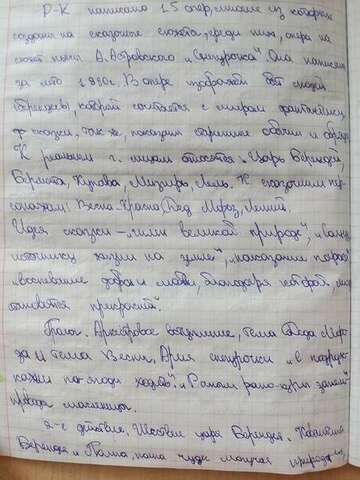 Р-К написано 15 опер, многие из которых
созданы на сказочные сюжеты, среди них, опера на
сюжет пьесы А. Островского "Снегурочка". Она написана
за лето 1880г. В опере изображён быт людей
берендеев, который сочетается с миром фантастики,
сказки, так же, показаны старинные обычаи и обряды
К реальным г. лицам относятся: Царь Берендей,
Бермята, Купава, Мизгирь, Лель. К сказочным пер-
сонажам: Весна-Красна, Дед Мороз, Леший.
Идея сказки – "гимн великой природе",
источнику жизни на земле",
воспевание добра и любви, благодаря которой, мир
становится прекрасней".
Пролог. Оркестровое вступление, тема Деда Моро-
за и тема Весны, Ария Снегурочки "С подруж-
ками по ягоду ходить" и Раным рано
проводы масленицы.
2-е действие, Шествие царя Берендея, Каватина
Берендея "Полна, полна чудес могучая природа",